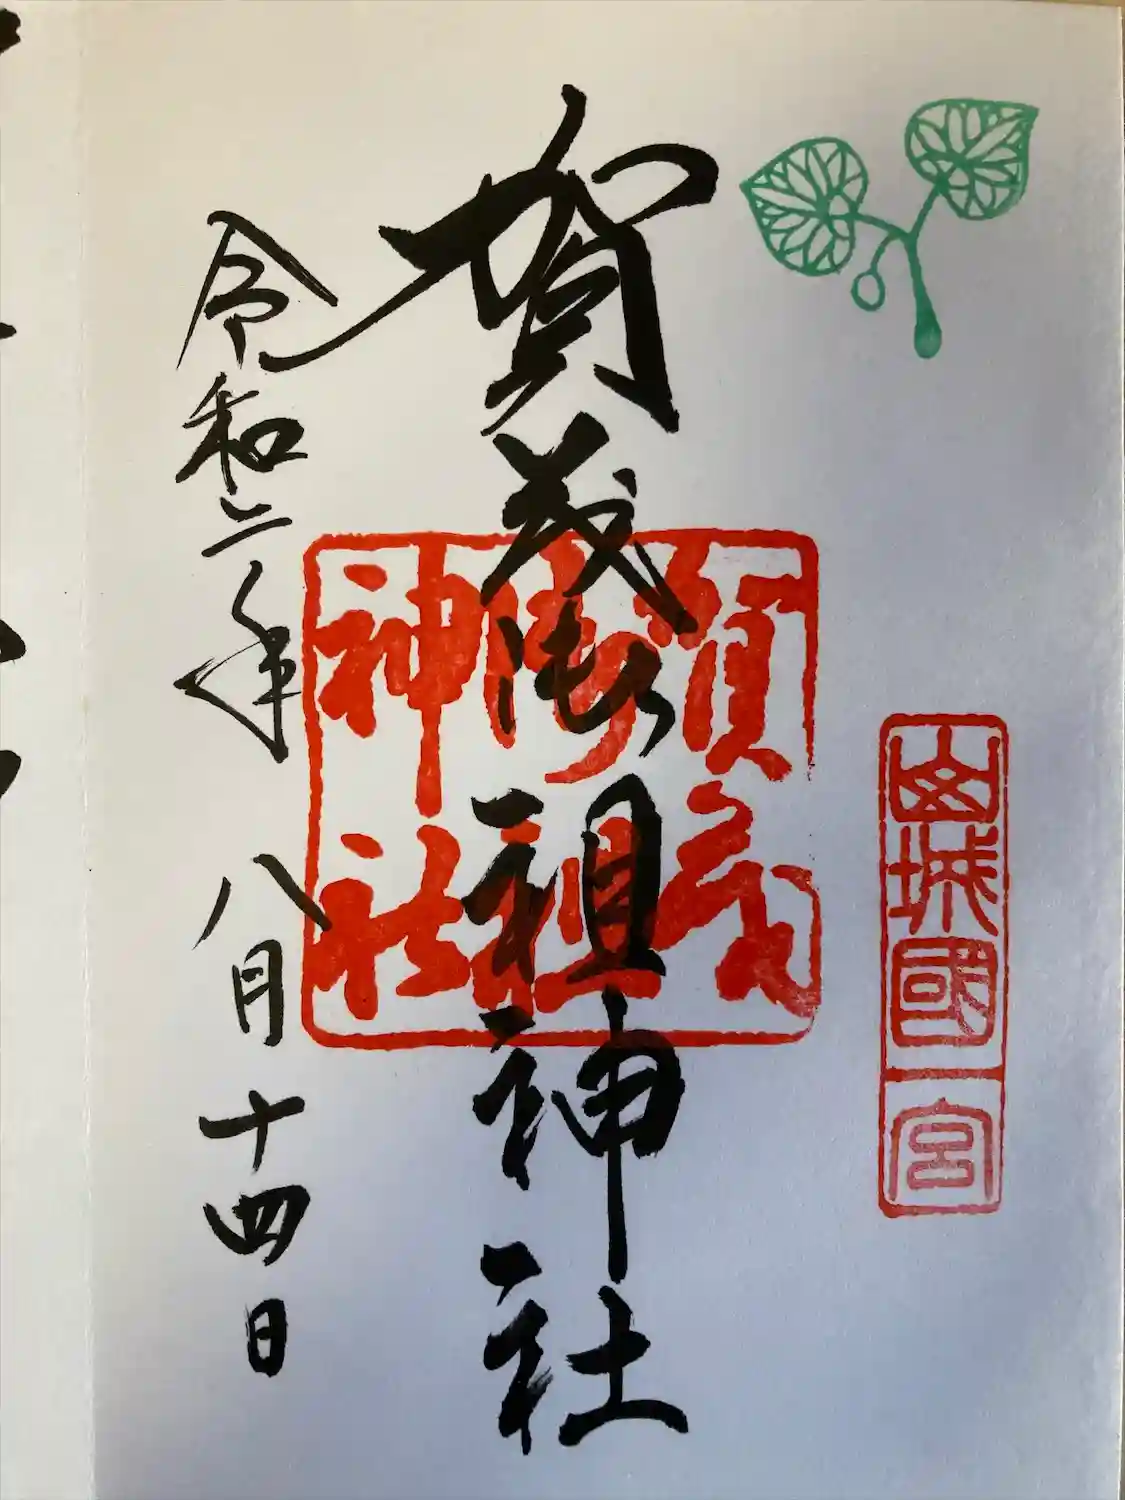 山城國一宮
賀茂御祖神社
賀茂御祖神社
令和二年 八月十四日